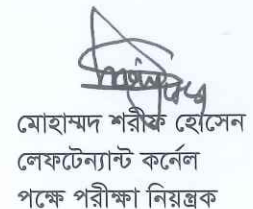 মোহাম্মদ শরীফ হোসেন
লেফটেন্যান্ট কর্নেল
পক্ষে পরীক্ষা নিয়ন্ত্রক